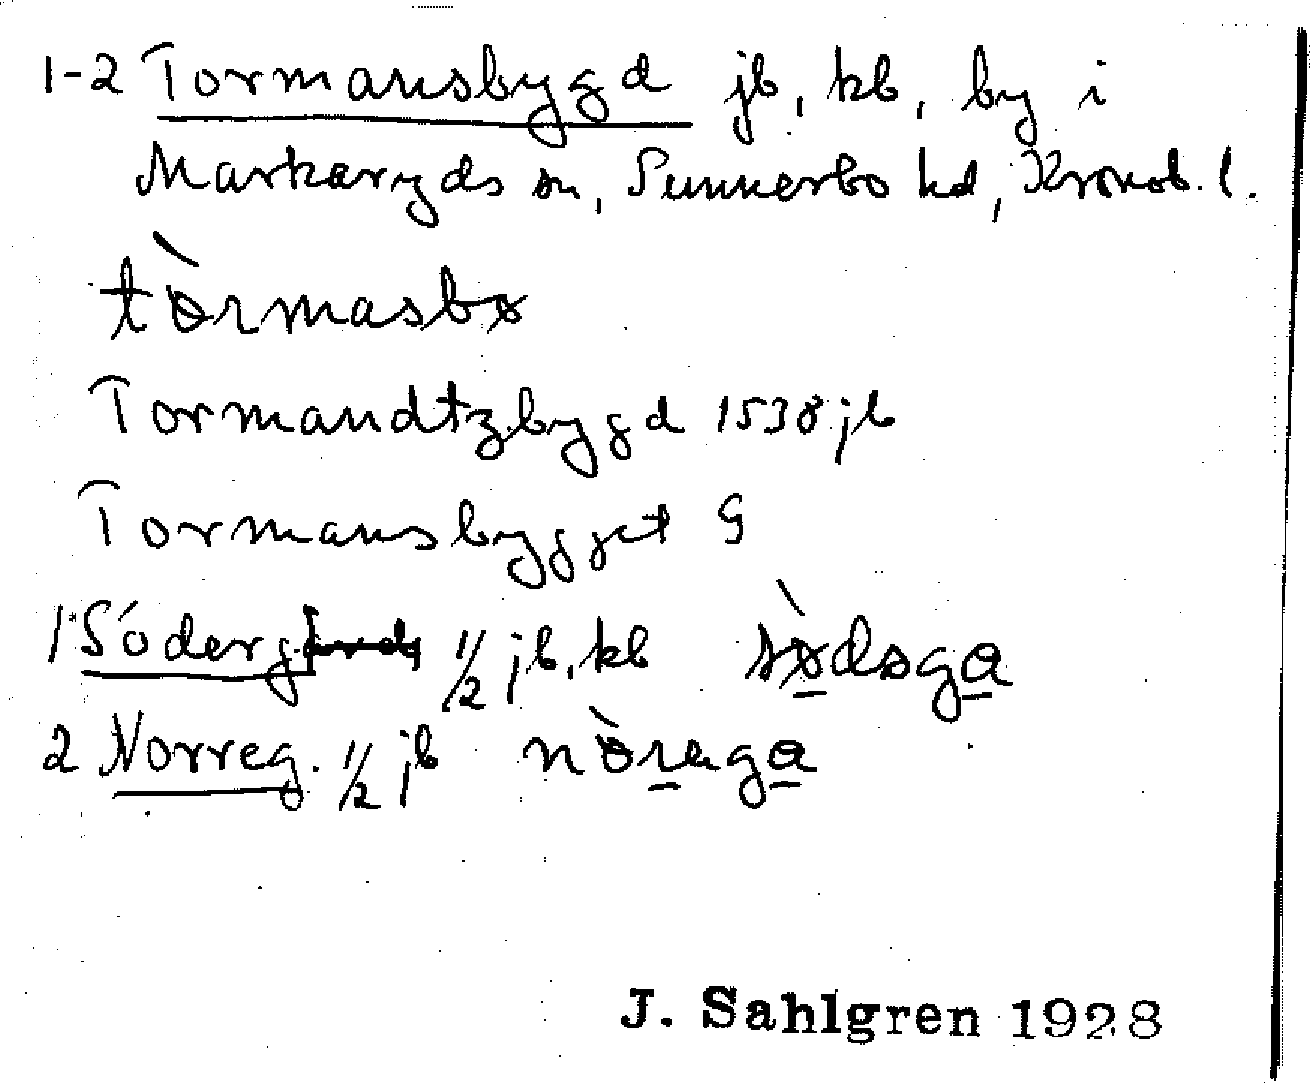 1-2 Tormansbygd jb, kb, by i
Markaryds sn, Sunnerbo hd, Kronob. l.
tòrmasbø
Tormandtzbygd 1538 jb
Tormansbygget G
1 Söderg 1/2 jb, kb sø̀dəga
2 Norreg. 1/2 jb nòraga
J. Sahlgren 1928